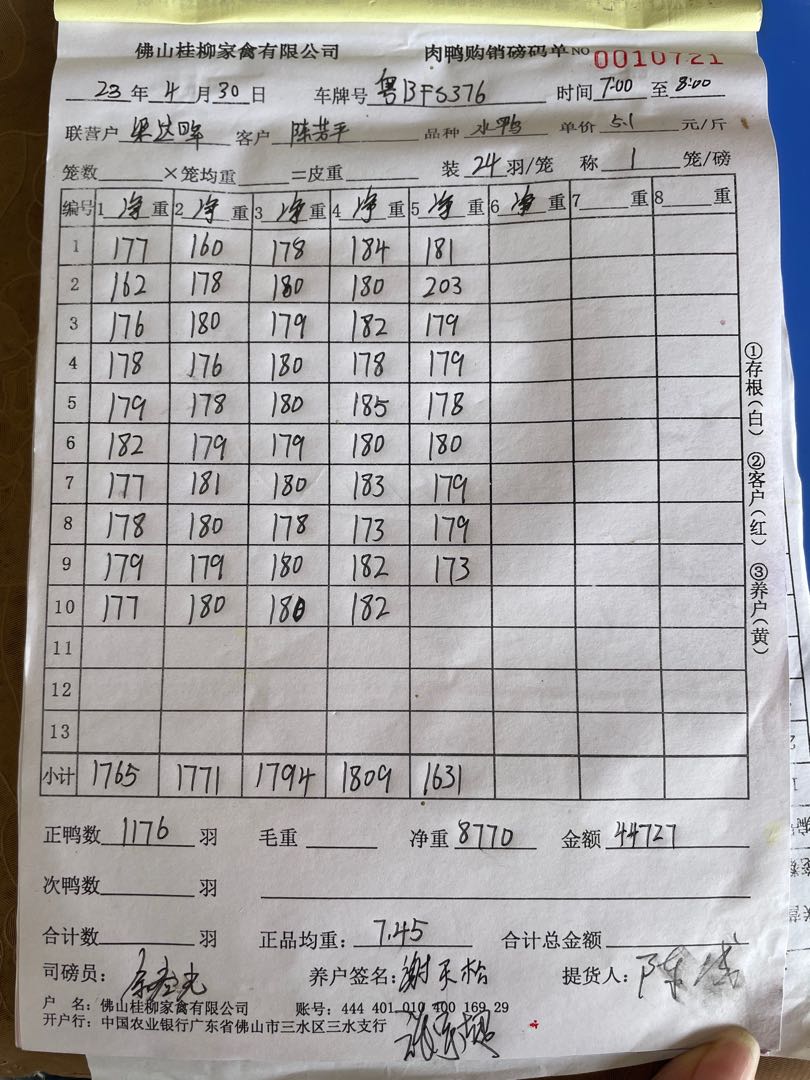 佛山桂柳家禽有限公司 肉鸭购销磅码单 NO 0010721
23年4月30日 车牌号 粤BFS376 时间 7:00 至 8:00
联营户 客户 陈芳平 品种 水鸭 单价 5.1 元/斤
笼数 ×笼均重 =皮重 装 24 羽/笼 称 1 笼/磅
编号 1 净 重 2 净 重 3 净 重 4 净 重 5 净 重 6 净 重 7 重 8 重
1 177 160 178 184 181
2 162 178 180 180 203
3 176 180 179 182 179
4 178 176 180 178 179
5 179 178 180 185 178
6 182 179 179 180 180
7 177 181 180 183 179
8 178 180 178 173 179
9 179 179 180 182 173
10 177 180 180 182
11
12
13
小计 1765 1771 1794 1809 1631
①存根(白) ②客户(红) ③养户(黄)
正鸭数 1176 羽 毛重 净重 8770 金额 44727
次鸭数 羽
合计数 羽 正品均重: 7.45 合计总金额
司磅员: 养户签名: 谢天松 提货人: 陈
户 名: 佛山桂柳家禽有限公司 账号: 444 401 010 400 169 29
开户行: 中国农业银行广东省佛山市三水区三水支行